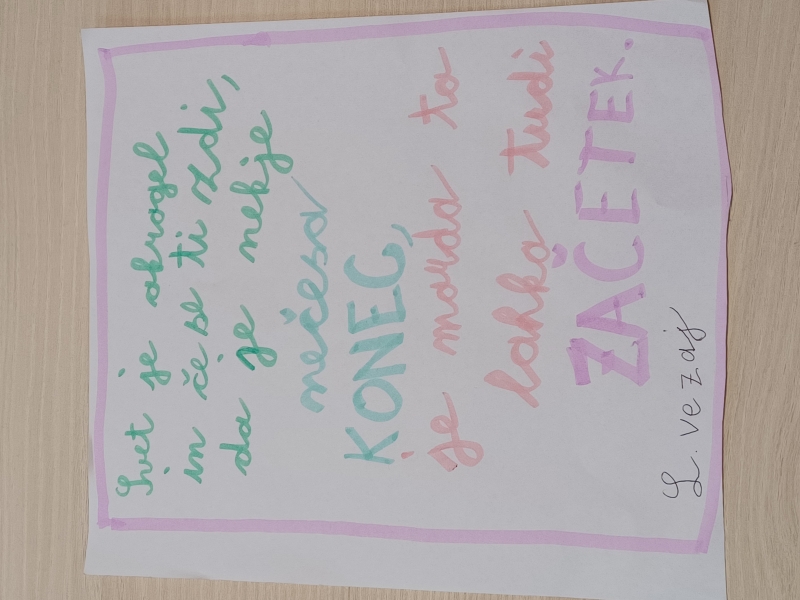 Svet je okrogel
in če se ti zdi,
da je nekje
nečesa
KONEC,
je morda to
lahko tudi
ZAČETEK.
L. vezaj